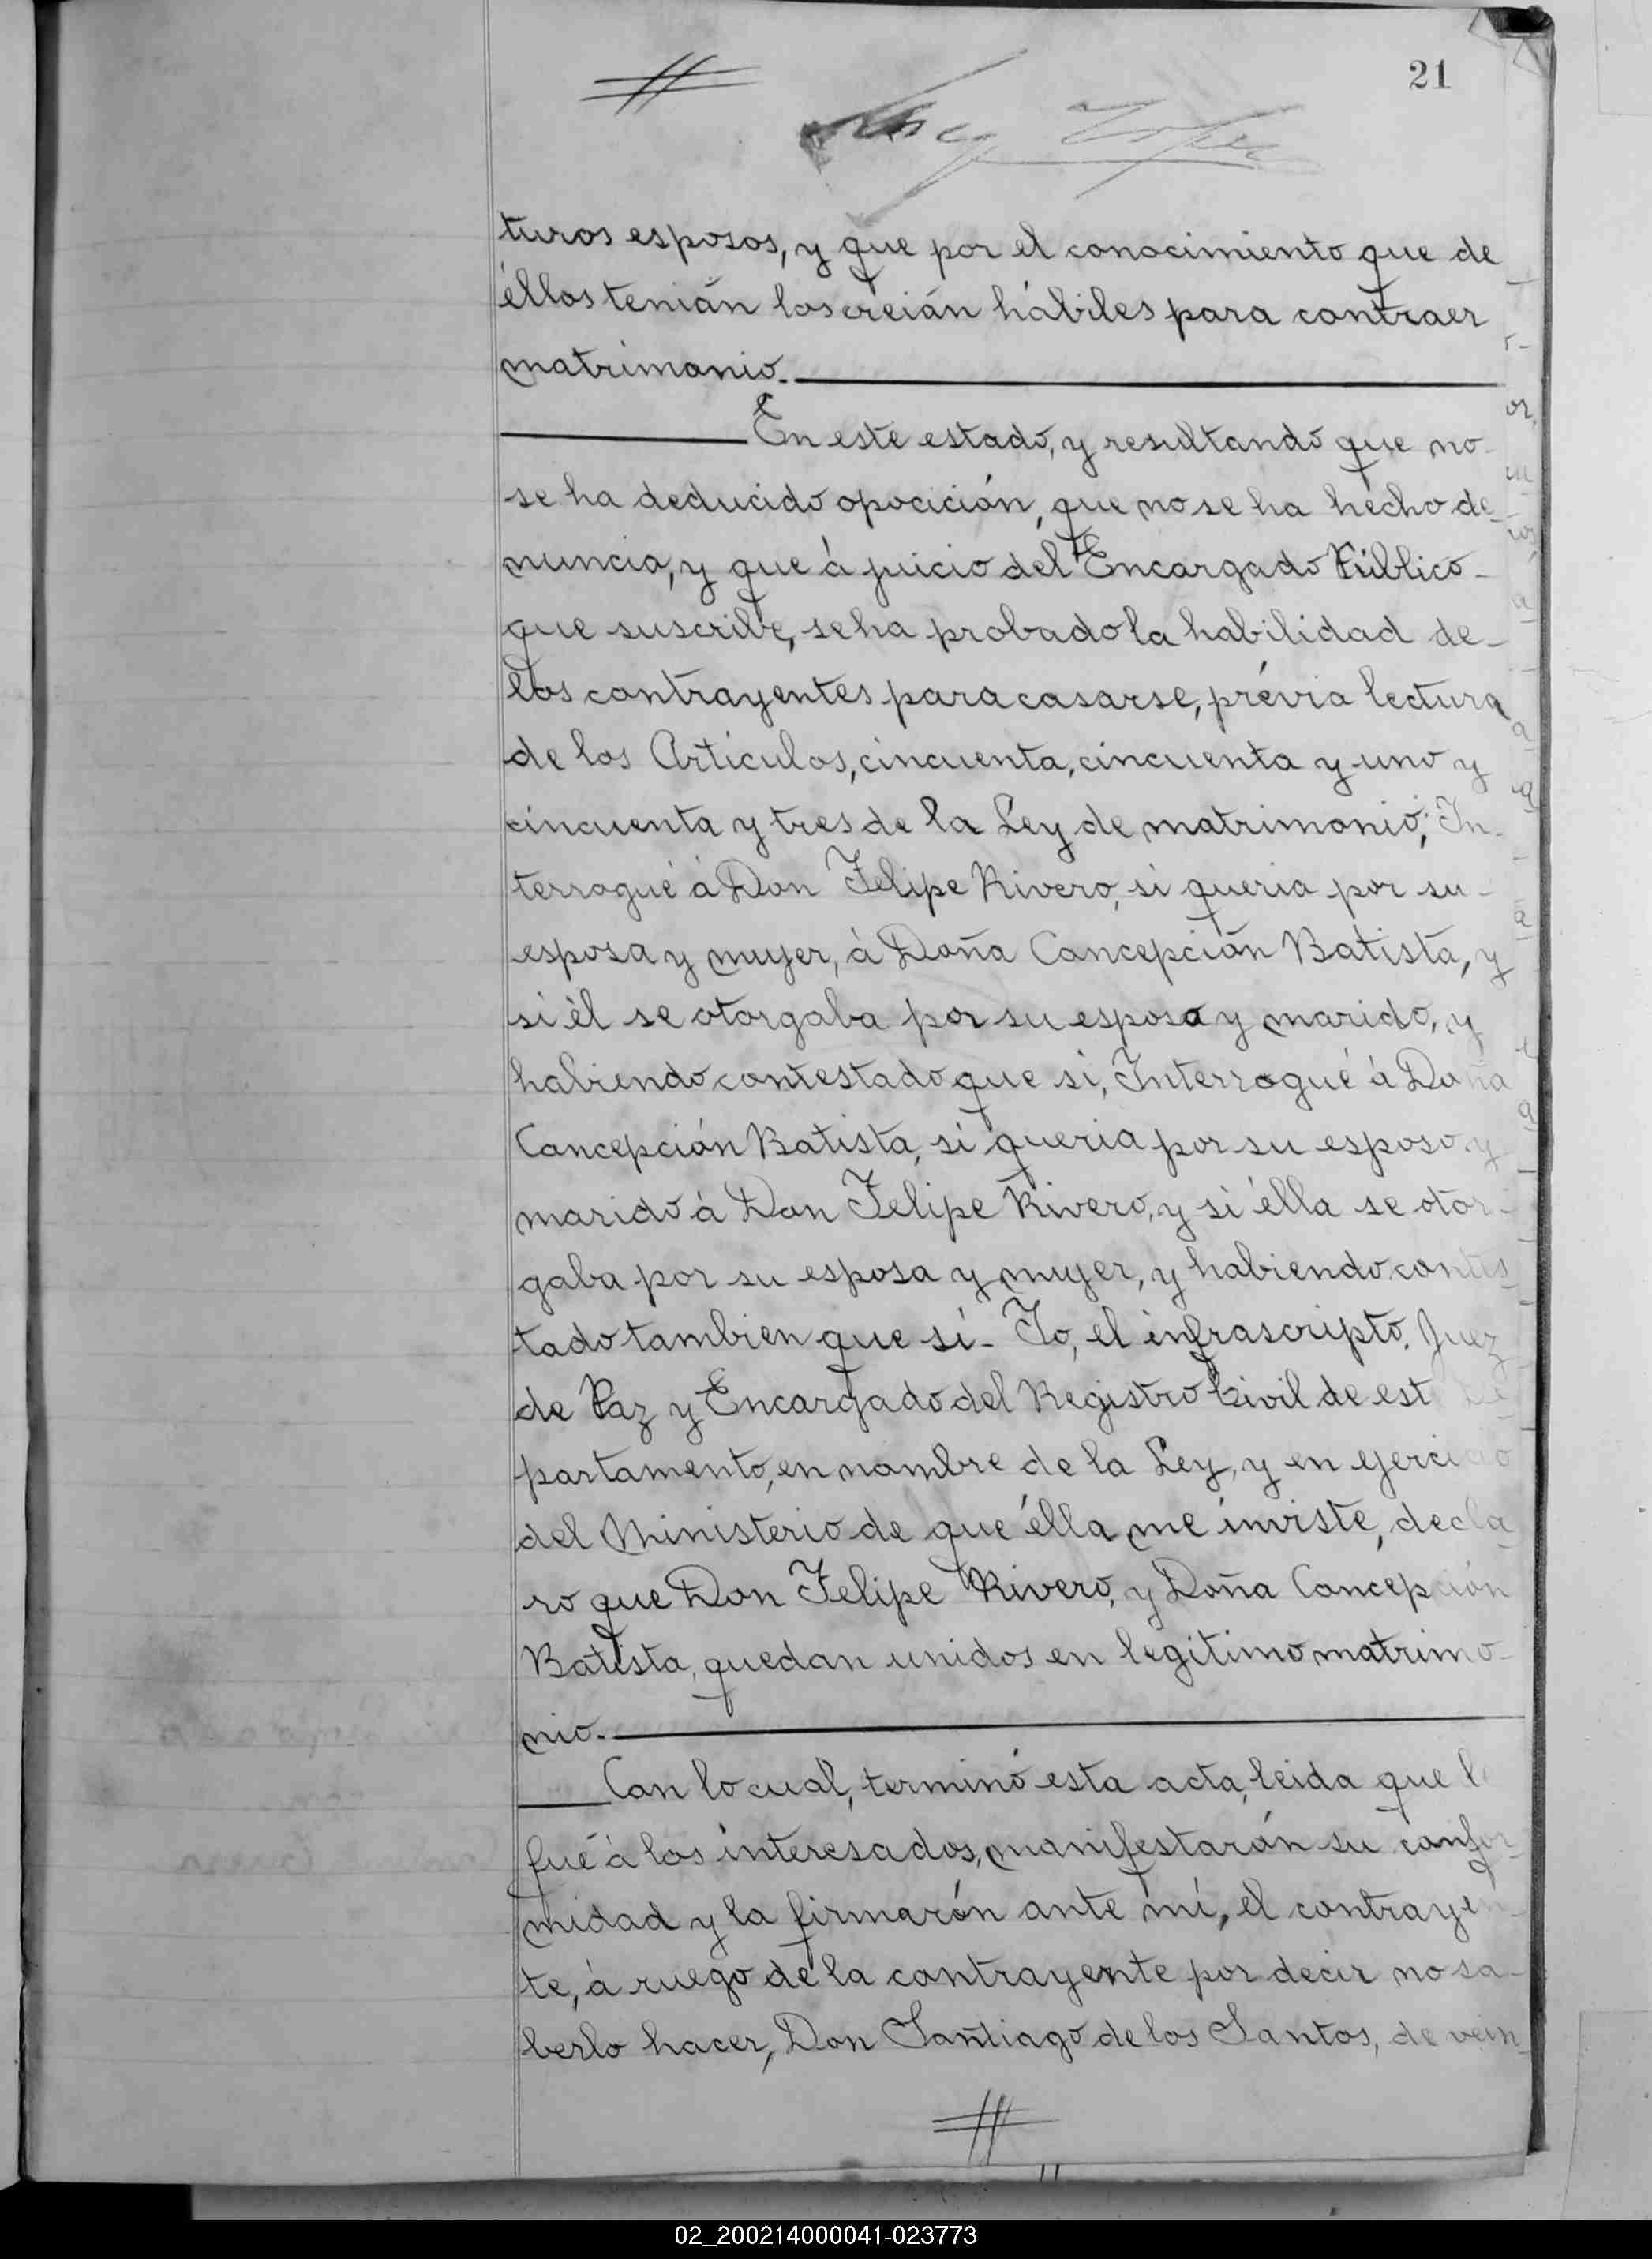 21
turos esposos, y que por el conocimiento que de
éllos tenián los creián hábiles para contraer
matrimonio.
En este estado, y resultando que no
se ha deducido opocición, que no se ha hecho de
nuncia, y que á juicio del Encargado Público
que suscribe, se ha probado la habilidad de
los contrayentes para casarse, prévia lectura
de los Articulos, cincuenta, cincuenta y uno y
cincuenta y tres de la Ley de matrimonio; In-
terrogué á Don Felipe Rivero, si queria por su
esposa y mujer, á Doña Concepción Batista, y
si él se otorgaba por su esposo y marido, y
habiendo contestado que si, Interrogué á Doña
Concepción Batista, si queria por su esposo y
marido á Don Felipe Rivero, y si élla se otor-
gaba por su esposa y mujer, y habiendo contes
tado tambien que si- Yo, él infrascripto, Juez
de Paz y Encargado del Registro Civil de est De
partamento, en nombre de la Ley, y en ejercicio
del Ministerio de que élla me inviste, decla
ro que Don Felipe Rivero, y Doña Concepción
Batista, quedan unidos en legitimo matrimo-
nio.
Con lo cual, terminó esta acta, leida que l
fué á los interesados, manifestarón su confor
midad y la firmarón ante mi, el contrayen
te, á ruego de la contrayente por decir no sa-
berlo hacer, Don Santiago de los Santos, de vein
02_200214000041-023773